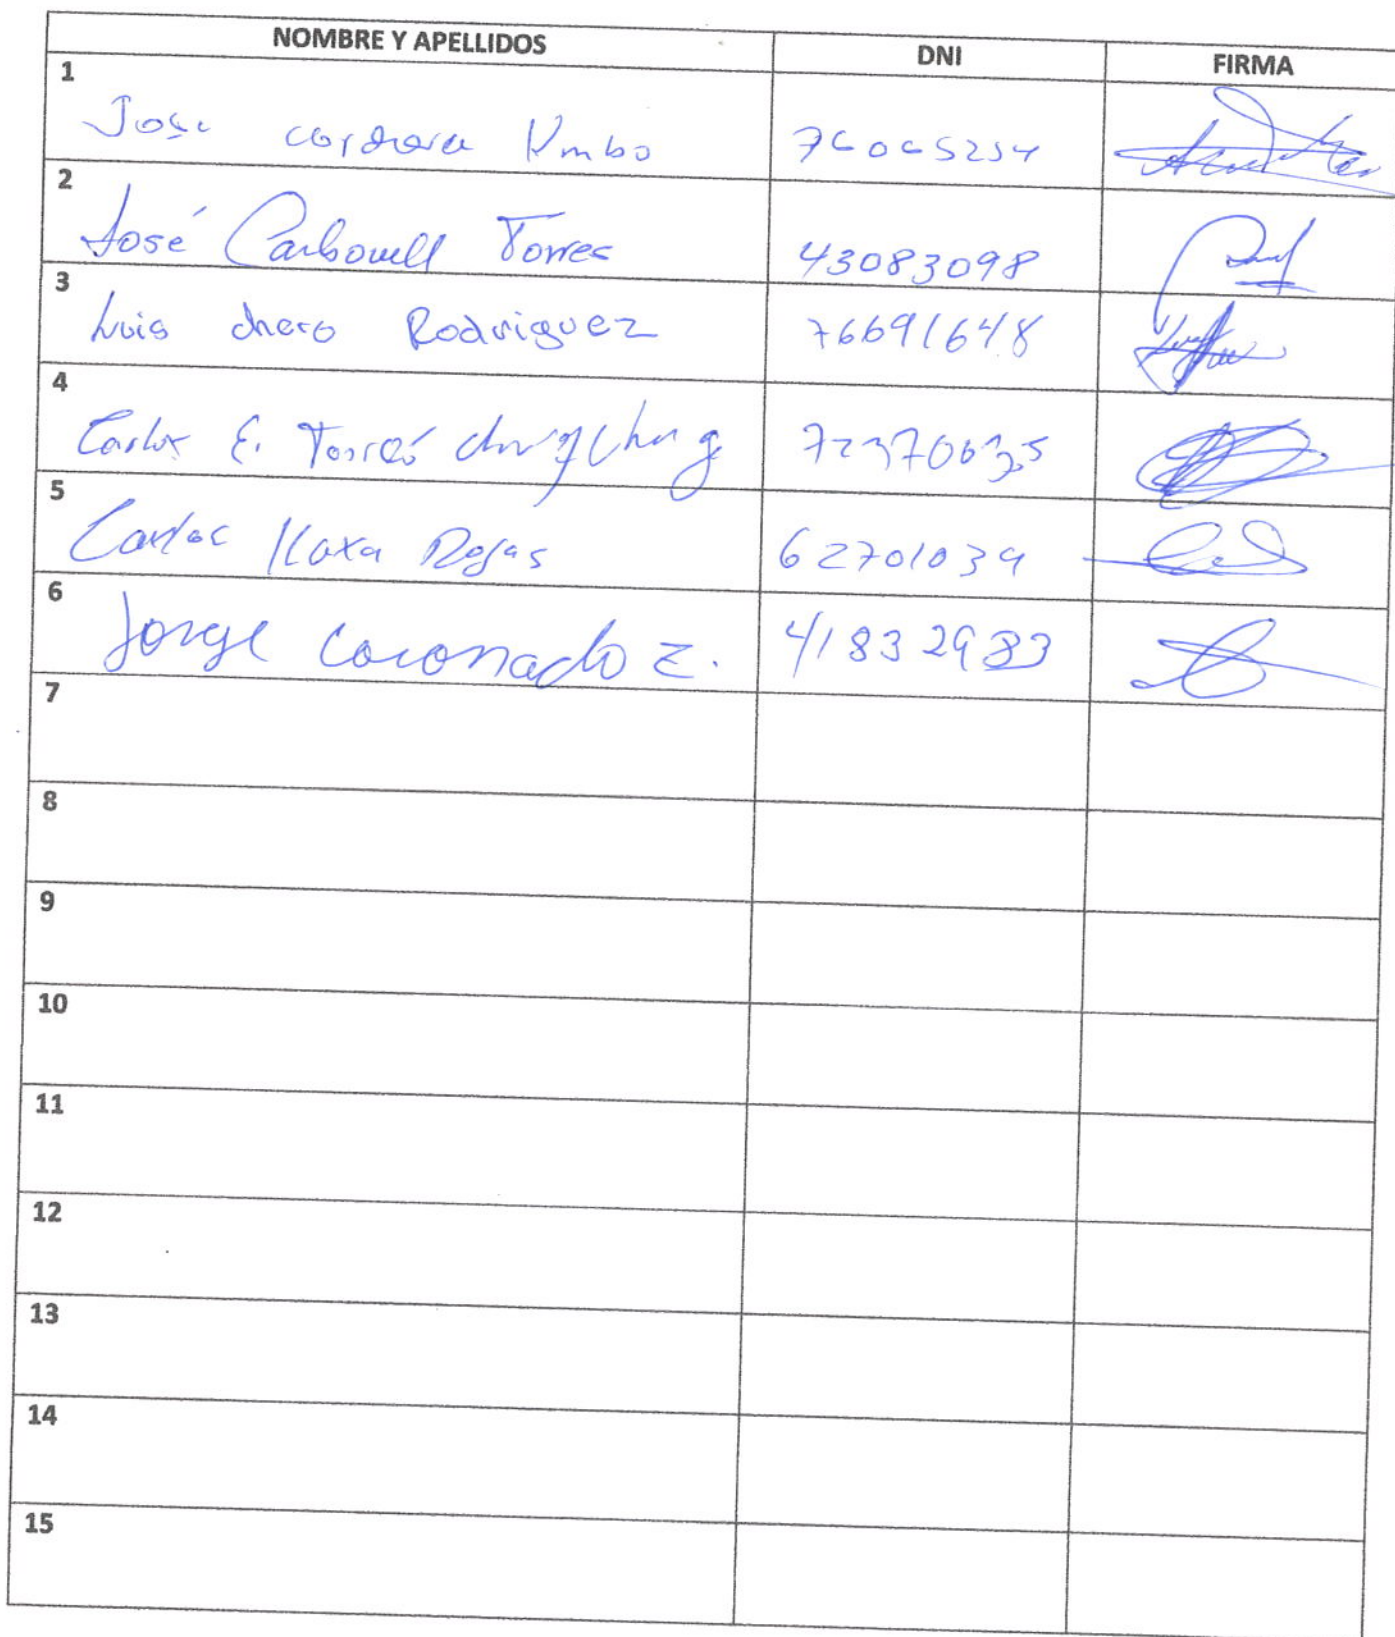 NOMBRE Y APELLIDOS DNI FIRMA
1
Jose 76065254
2
José Carbonell Torres 43083098
3
Luis chero Rodriguez 76691648
4
Carlos E. Torres chungchung
5
Carlos Rojas 62701039
6
Jorge Coronado Z. 41832983
7
8
9
10
11
12
13
14
15